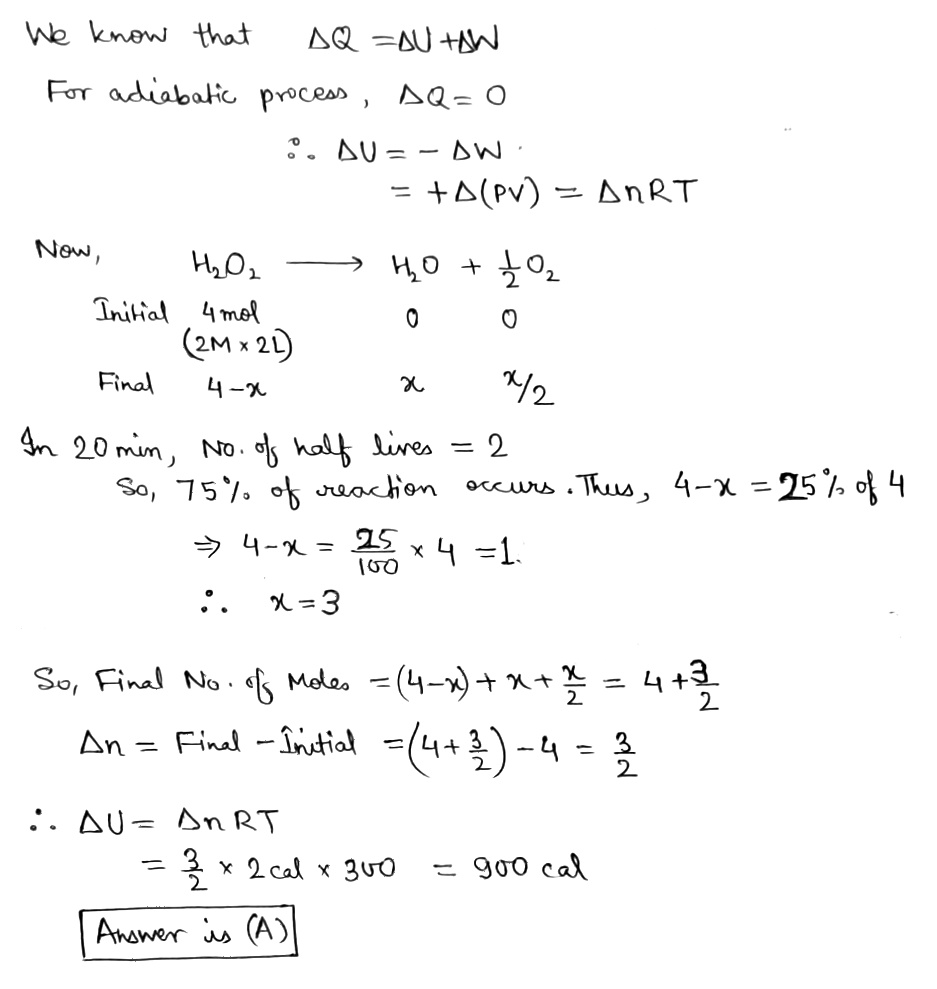 We know that ΔQ = ΔU + ΔW
For adiabatic process, ΔQ = 0
∴ ΔU = - ΔW
= + Δ(PV) = ΔnRT
Now, H₂O₂ ⟶ H₂O + 1/2 O₂
Initial 4 mol 0 0
(2M × 2L)
Final 4-x x x/2
In 20 min, No. of half lives = 2
So, 75% of reaction occurs. Thus, 4-x = 25% of 4
⇒ 4-x = 25/100 × 4 = 1.
∴ x = 3
So, Final No. of Moles = (4-x) + x + x/2 = 4 + 3/2
Δn = Final - Initial = (4 + 3/2) - 4 = 3/2
∴ ΔU = ΔnRT
= 3/2 × 2 cal × 300 = 900 cal
Answer is (A)